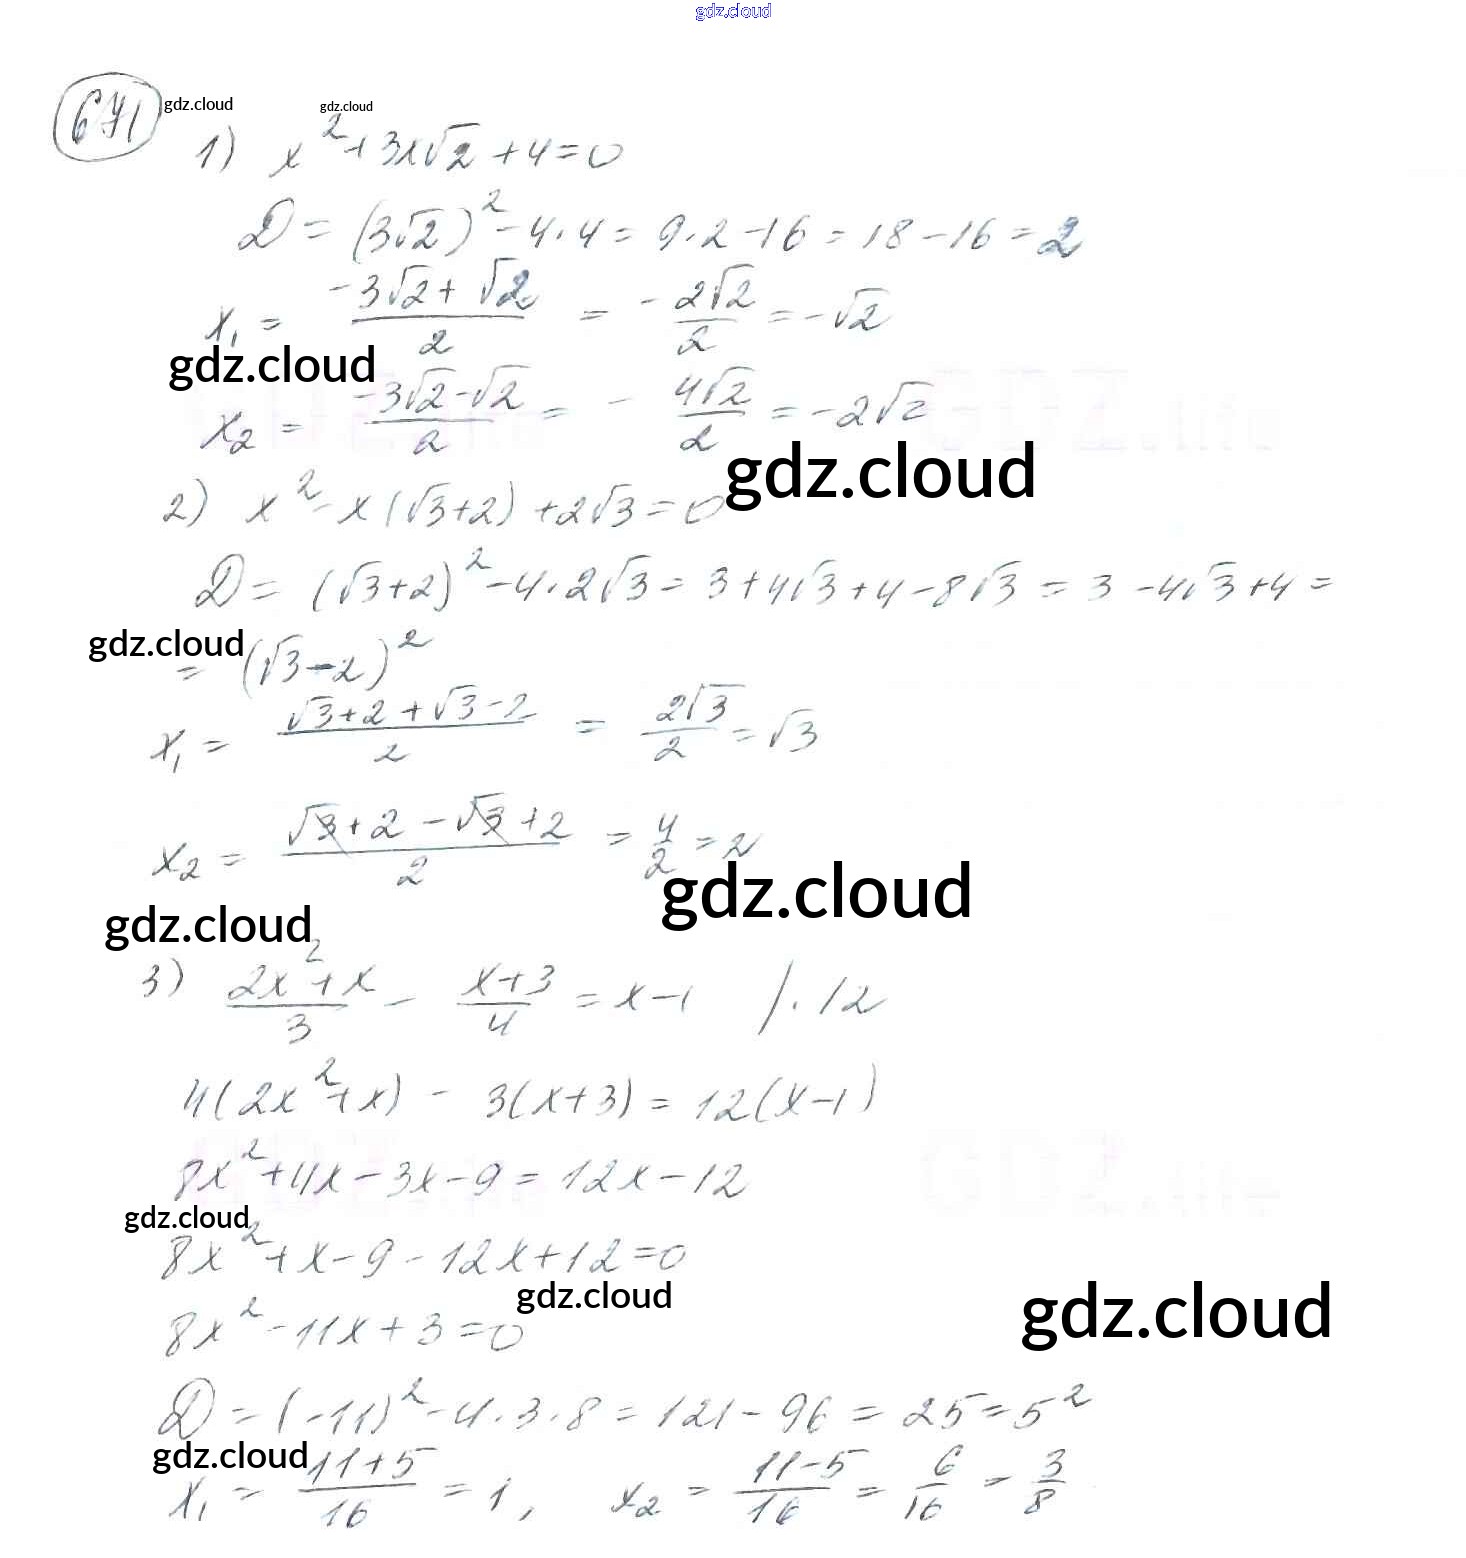 gdz.cloud
671 gdz.cloud gdz.cloud
1) x² + 3x√2 + 4 = 0
D = (3√2)² - 4·4 = 9·2 - 16 = 18 - 16 = 2
x₁ = (-3√2 + √2)/2 = - 2√2/2 = -√2
gdz.cloud
GDZ.life GDZ.life
x₂ = (-3√2 - √2)/2 = - 4√2/2 = -2√2
gdz.cloud
2) x² - x(√3+2) + 2√3 = 0
D = (√3+2)² - 4·2√3 = 3 + 4√3 + 4 - 8√3 = 3 - 4√3 + 4 =
gdz.cloud
= (√3 - 2)²
x₁ = (√3 + 2 + √3 - 2)/2 = 2√3/2 = √3
x₂ = (√3 + 2 - √3 + 2)/2 = 4/2 = 2
gdz.cloud
gdz.cloud
3) (2x² + x)/3 - (x+3)/4 = x - 1 /·12
4(2x² + x) - 3(x+3) = 12(x-1)
8x² + 4x - 3x - 9 = 12x - 12
GDZ.life GDZ.life
gdz.cloud
8x² + x - 9 - 12x + 12 = 0
gdz.cloud gdz.cloud
8x² - 11x + 3 = 0
D = (-11)² - 4·3·8 = 121 - 96 = 25 = 5²
gdz.cloud
x₁ = (11+5)/16 = 1, x₂ = (11-5)/16 = 6/16 = 3/8